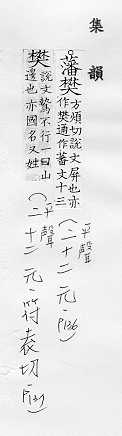 集韻
藩樊
方煩切說文屏也亦
作樊通作蕃文十三
平聲
(二十二元.P136)
樊
說文騺不行一曰山
邊也亦國名又姓
(平聲
二十二元.符袁切P137)